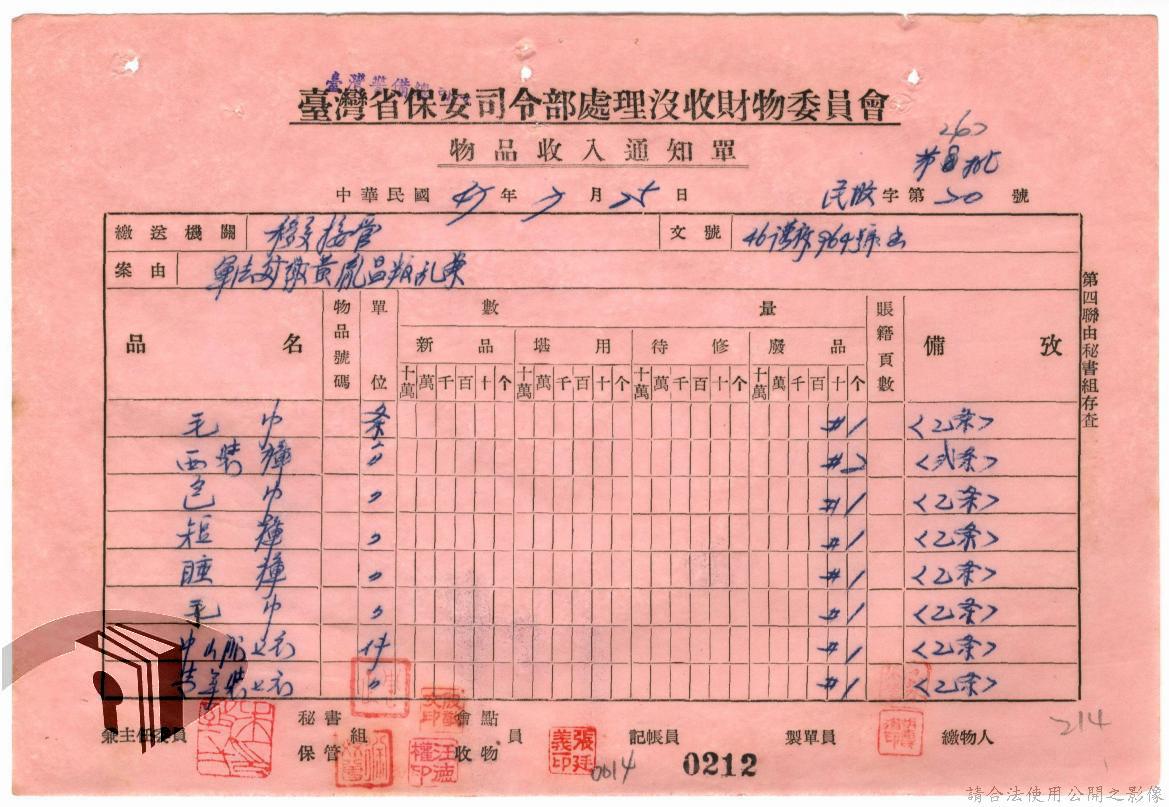 臺灣省保安司令部處理沒收財物委員會
物品收入通知單
260
中華民國 年 月 25 日 民政字第 50 號
繳送機關 移交接管 文號 46 964號
案由 軍法 黃 昌叛亂案
品名 物品號碼 單位 數量 賬籍頁數 備攷
新品 堪用 待修 廢品
十萬 萬 千 百 十 个 十萬 萬 千 百 十 个 十萬 萬 千 百 十 个 十萬 萬 千 百 十 个
毛巾 条 #1 <乙条>
西裝褲 〃 #2 <弍条>
包巾 〃 #1 <乙条>
短褲 〃 #1 <乙条>
睡褲 〃 #1 <乙条>
毛巾 〃 #1 <乙条>
中山服上衣 件 #1 <乙条>
青年裝上衣 〃 #1 <乙条>
第四聯由秘書組存查
兼主任委員 秘書 保管 組 會點 收物 員 記帳員 製單員 繳物人
張廷義印
0014
0212
214
請合法使用公開之影像